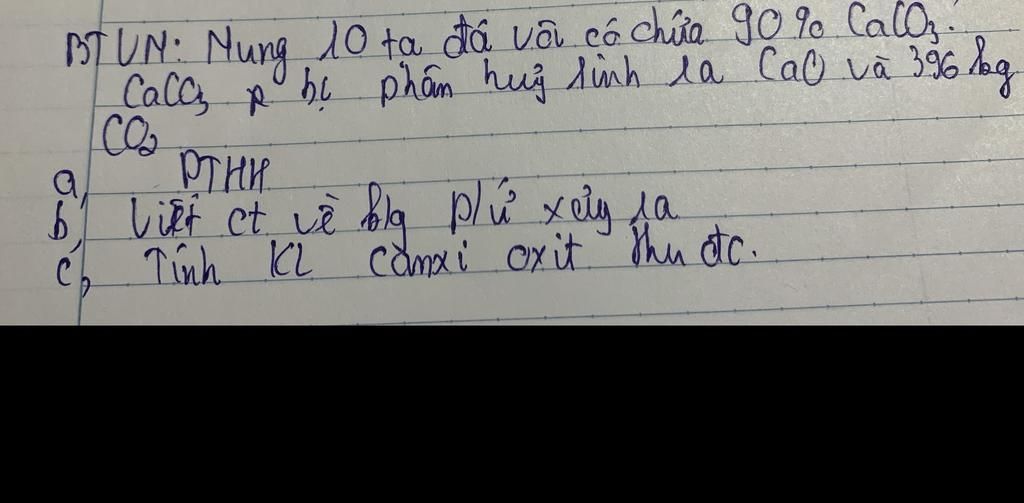 BTVN: Nung 10 tạ đá vôi có chứa 90% CaCO3.
CaCO3 bị phân huỷ sinh ra CaO và 396 kg
CO2
a, PTHH
b, Viết ct về klg p/ứ xảy ra
c, Tính KL canxi oxit thu đc.